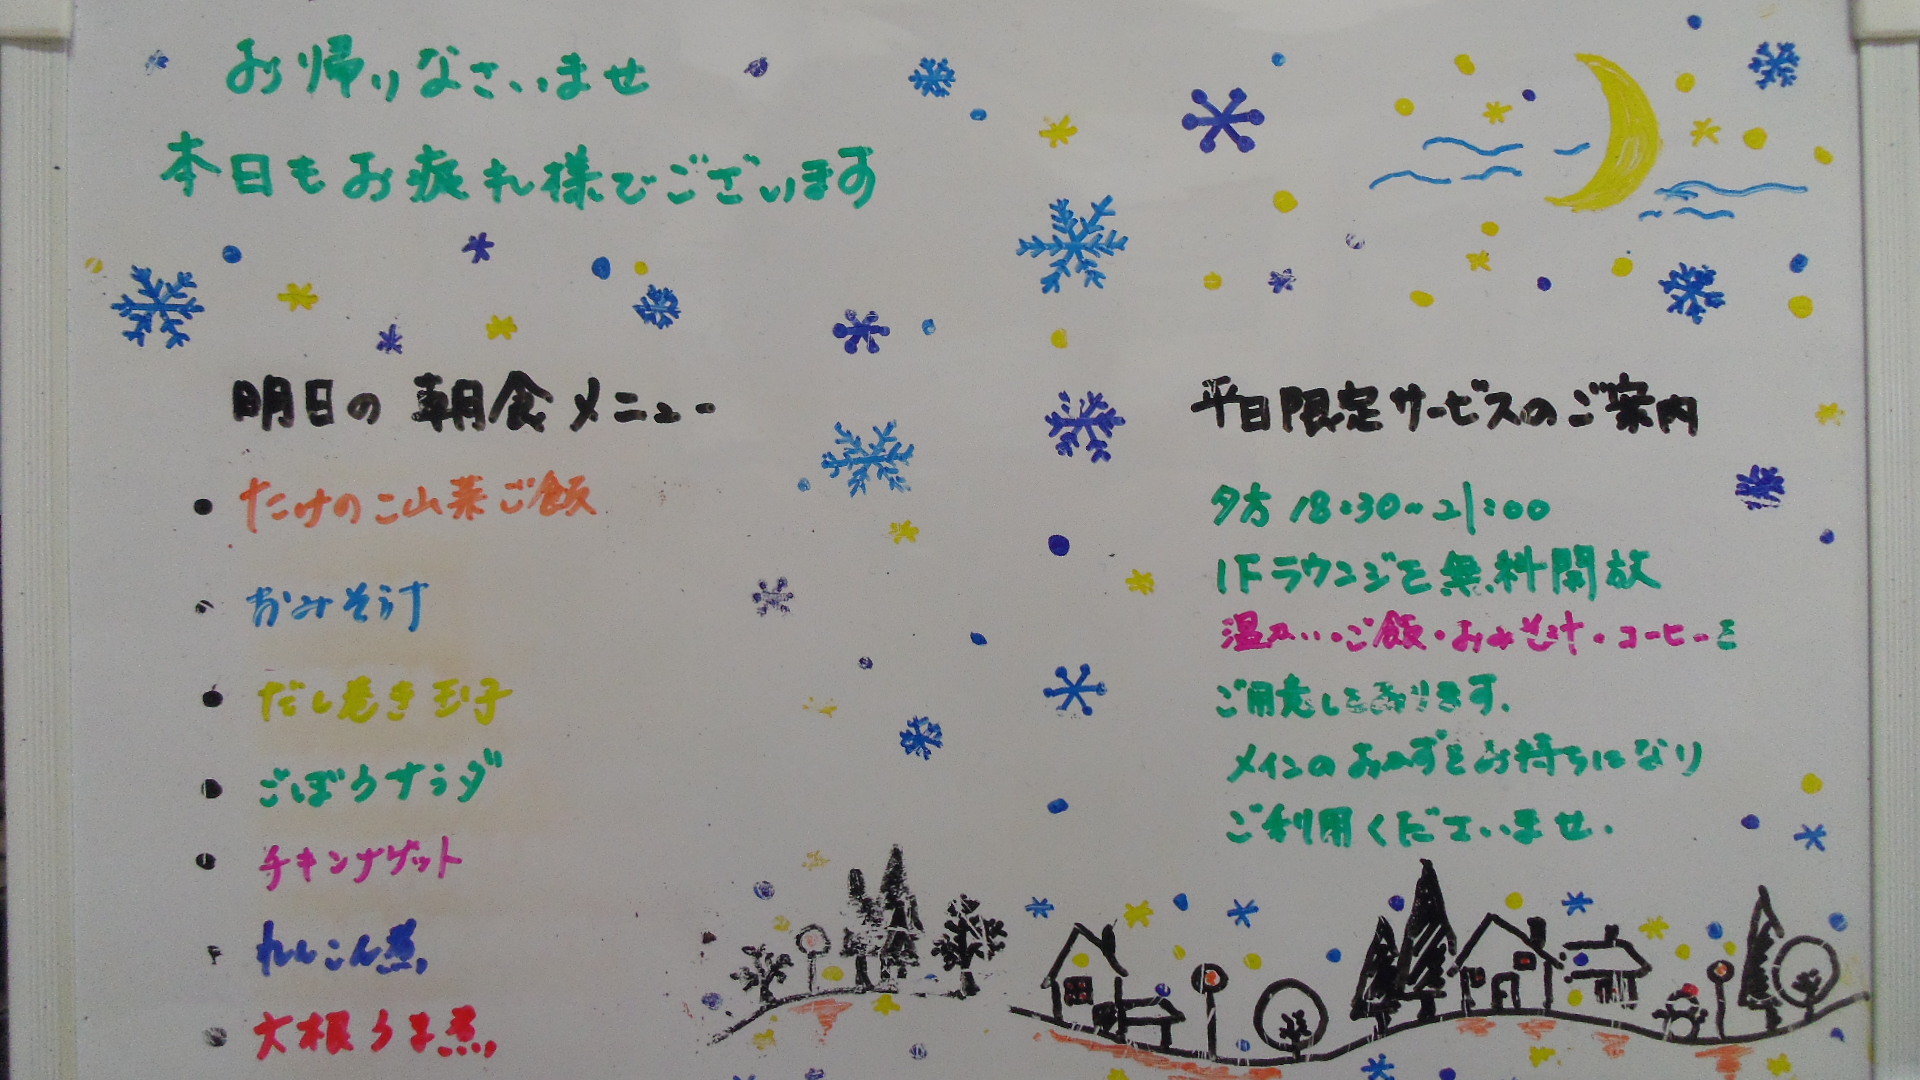 お帰りなさいませ
本日もお疲れ様でございます
明日の朝食メニュー
・たけのこ山菜ご飯
・おみそ汁
・だし巻き玉子
・ごぼうサラダ
・チキンナゲット
・れんこん煮
・大根うま煮
平日限定サービスのご案内
夕方 18:30~21:00
1Fラウンジを無料開放
温かい・ご飯・おみそ汁・コーヒーを
ご用意しております。
メインのおかずをお持ちになり
ご利用くださいませ.